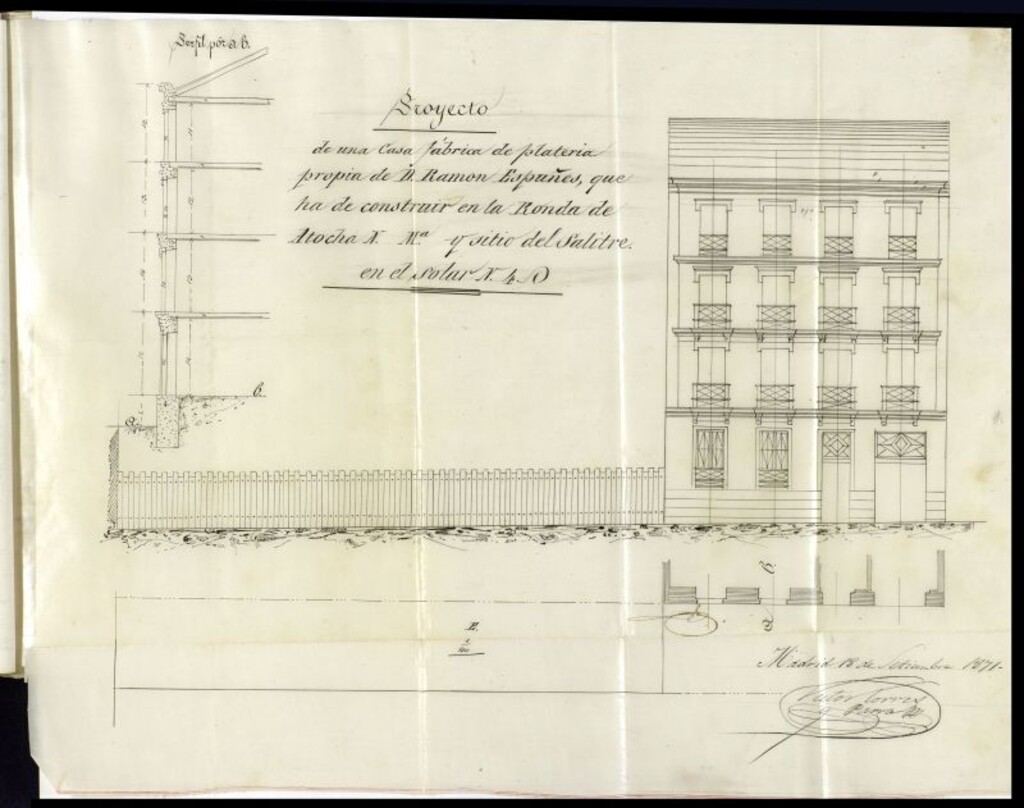 Perfil por a b.
Proyecto
de una Casa fábrica de plateria
propia de D. Ramon Espuñes, que
ha de construir en la Ronda de
Atocha N. M.ª y sitio del Salitre.
en el Solar N. 4
b.
a
b
a
E.
1/100
Madrid 18 de Setiembre 1871.